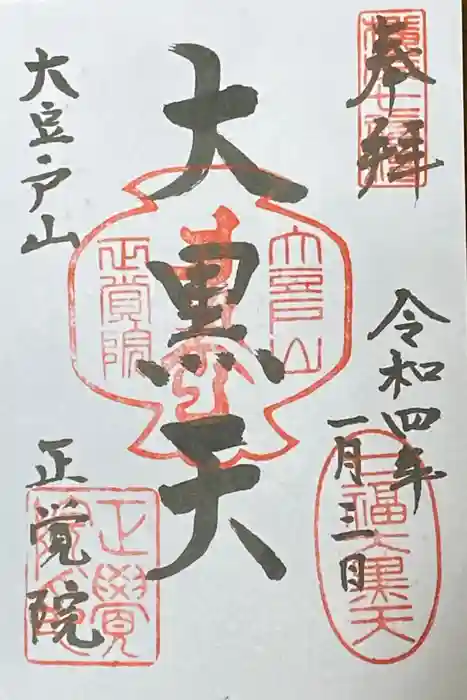 奉拝
令和四年
一月三日
七福大黒天
大黒天
大豆戸山
正覚院
大豆戸山
正覚院
正覺院印